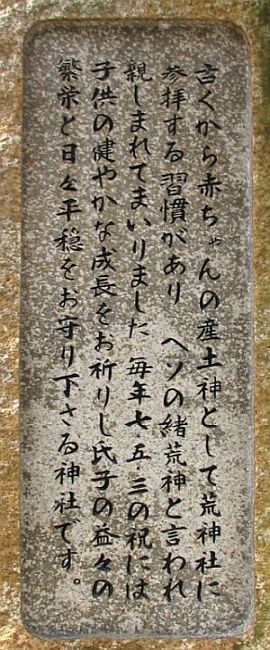 古くから赤ちゃんの産土神として荒神社に
参拝する習慣があり　ヘソの緒荒神と言われ
親しまれてまいりました 毎年七・五・三の祝には
子供の健やかな成長をお祈りし氏子の益々の
繁栄と日々平穏をお守り下さる神社です。